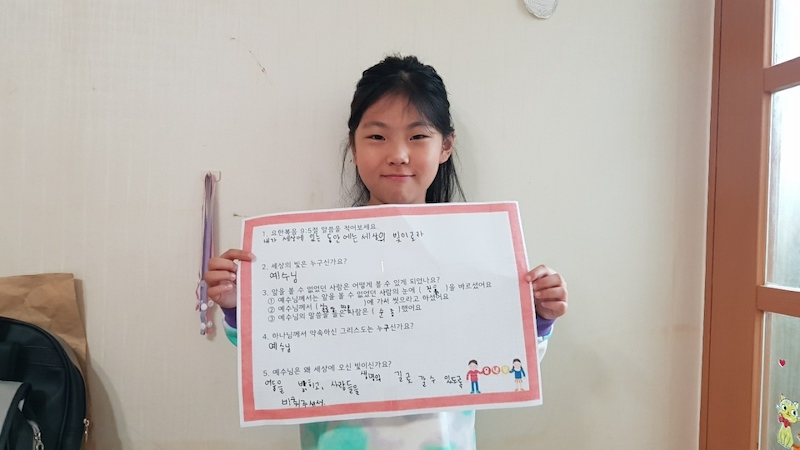 1. 요한복음 9:5절 말씀을 적어보세요
내가 세상에 있는 동안에는 세상의 빛이로라
2. 세상의 빛은 누구신가요?
예수님
3. 앞을 볼 수 없었던 사람은 어떻게 볼 수 있게 되었나요?
① 예수님께서는 앞을 볼 수 없었던 사람의 눈에 ( 진흙 )을 바르셨어요
② 예수님께서 ( )에 가서 씻으라고 하셨어요
③ 예수님의 말씀을 들은 사람은 ( 순종 )했어요
4. 하나님께서 약속하신 그리스도는 누구신가요?
예수님
5. 예수님은 왜 세상에 오신 빛이신가요?
어둠을 밝히고, 사람들을 생명의 길로 갈 수 있도록
비춰주셔서